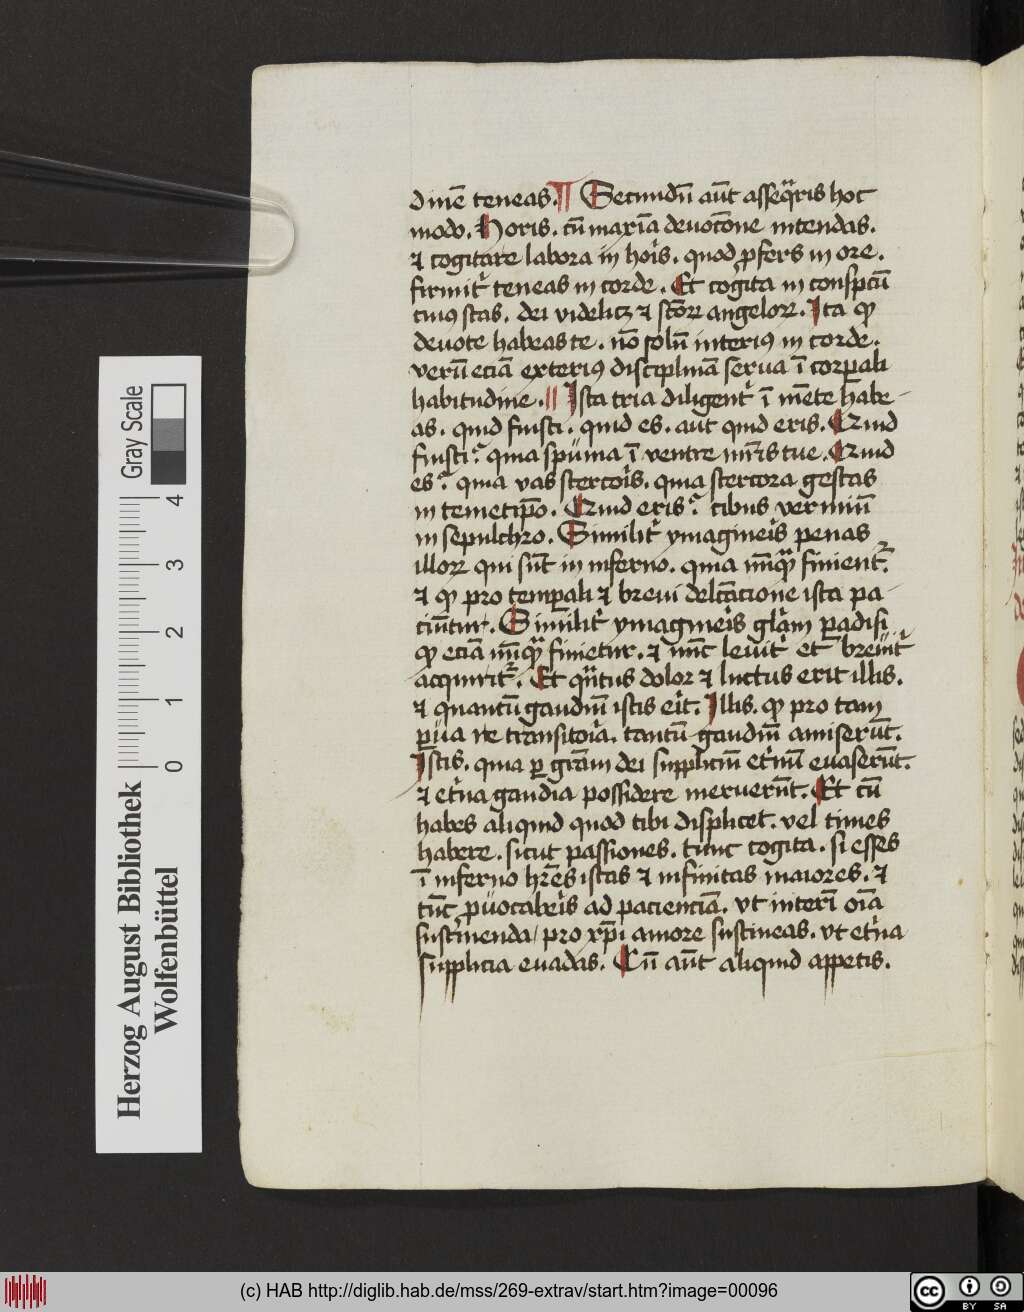 dīnē teneas. ¶ Secundū aūt assequeris hoc
modo. Horis. cū maxīa deuotōne intendas.
⁊ cogitare labora in horis. quod pfers in ore.
firmit teneas in corde. Et cogita in conspcū
cuius stas. dei videlicz ⁊ scōrꝝ angelorꝝ. Ita ꝙ
deuote habeas te. nō solū interius in corde.
verū eciā exterius disciplinā serua ī corpali
habitudine. ¶ Ista tria diligent ī mēte habe-
as. quid fuisti. quid es. aut quid eris. Quid
fuisti? quia spuma ī ventre mr̄is tue. Quid
es? quia vas stercoris. quia stercora gestas
in temetipō. Quid eris? cibus vermiū
in sepulchro. Similit ymagineris penas
illorꝝ qui sūt in inferno. quia nūq̄ finient.
⁊ ꝙ pro tempali ⁊ breui delcācione ista pa-
ciūtur. Similit ymagineris glām padisi
ꝙ eciā nūq̄ finietur. ⁊ nūc leuit et breuit
acquirit. Et quātus dolor ⁊ luctus erit illis.
⁊ quantū gaudiū istis erit. Illis. ꝙ pro tam
pua re transitoria. tantū gaudiū amiserūt.
Istis. quia p grām dei suppliciū etnū euaserūt.
⁊ etna gaudia possidere meruerūt. Et cū
habes aliquid quod tibi displicet. vel times
habere. sicut passiones. tunc cogita. si esses
ī inferno hr̄es istas ⁊ infinitas maiores. ⁊
tūc puocaberis ad pacienciā. vt interī oīa
sustinenda / pro xp̄i amore sustineas. vt etna
supplicia euadas. Cū aūt aliquid appetis.
Herzog August Bibliothek
Wolfenbüttel
Gray Scale
0 1 2 3 4
(c) HAB http://diglib.hab.de/mss/269-extrav/start.htm?image=00096
cc BY SA